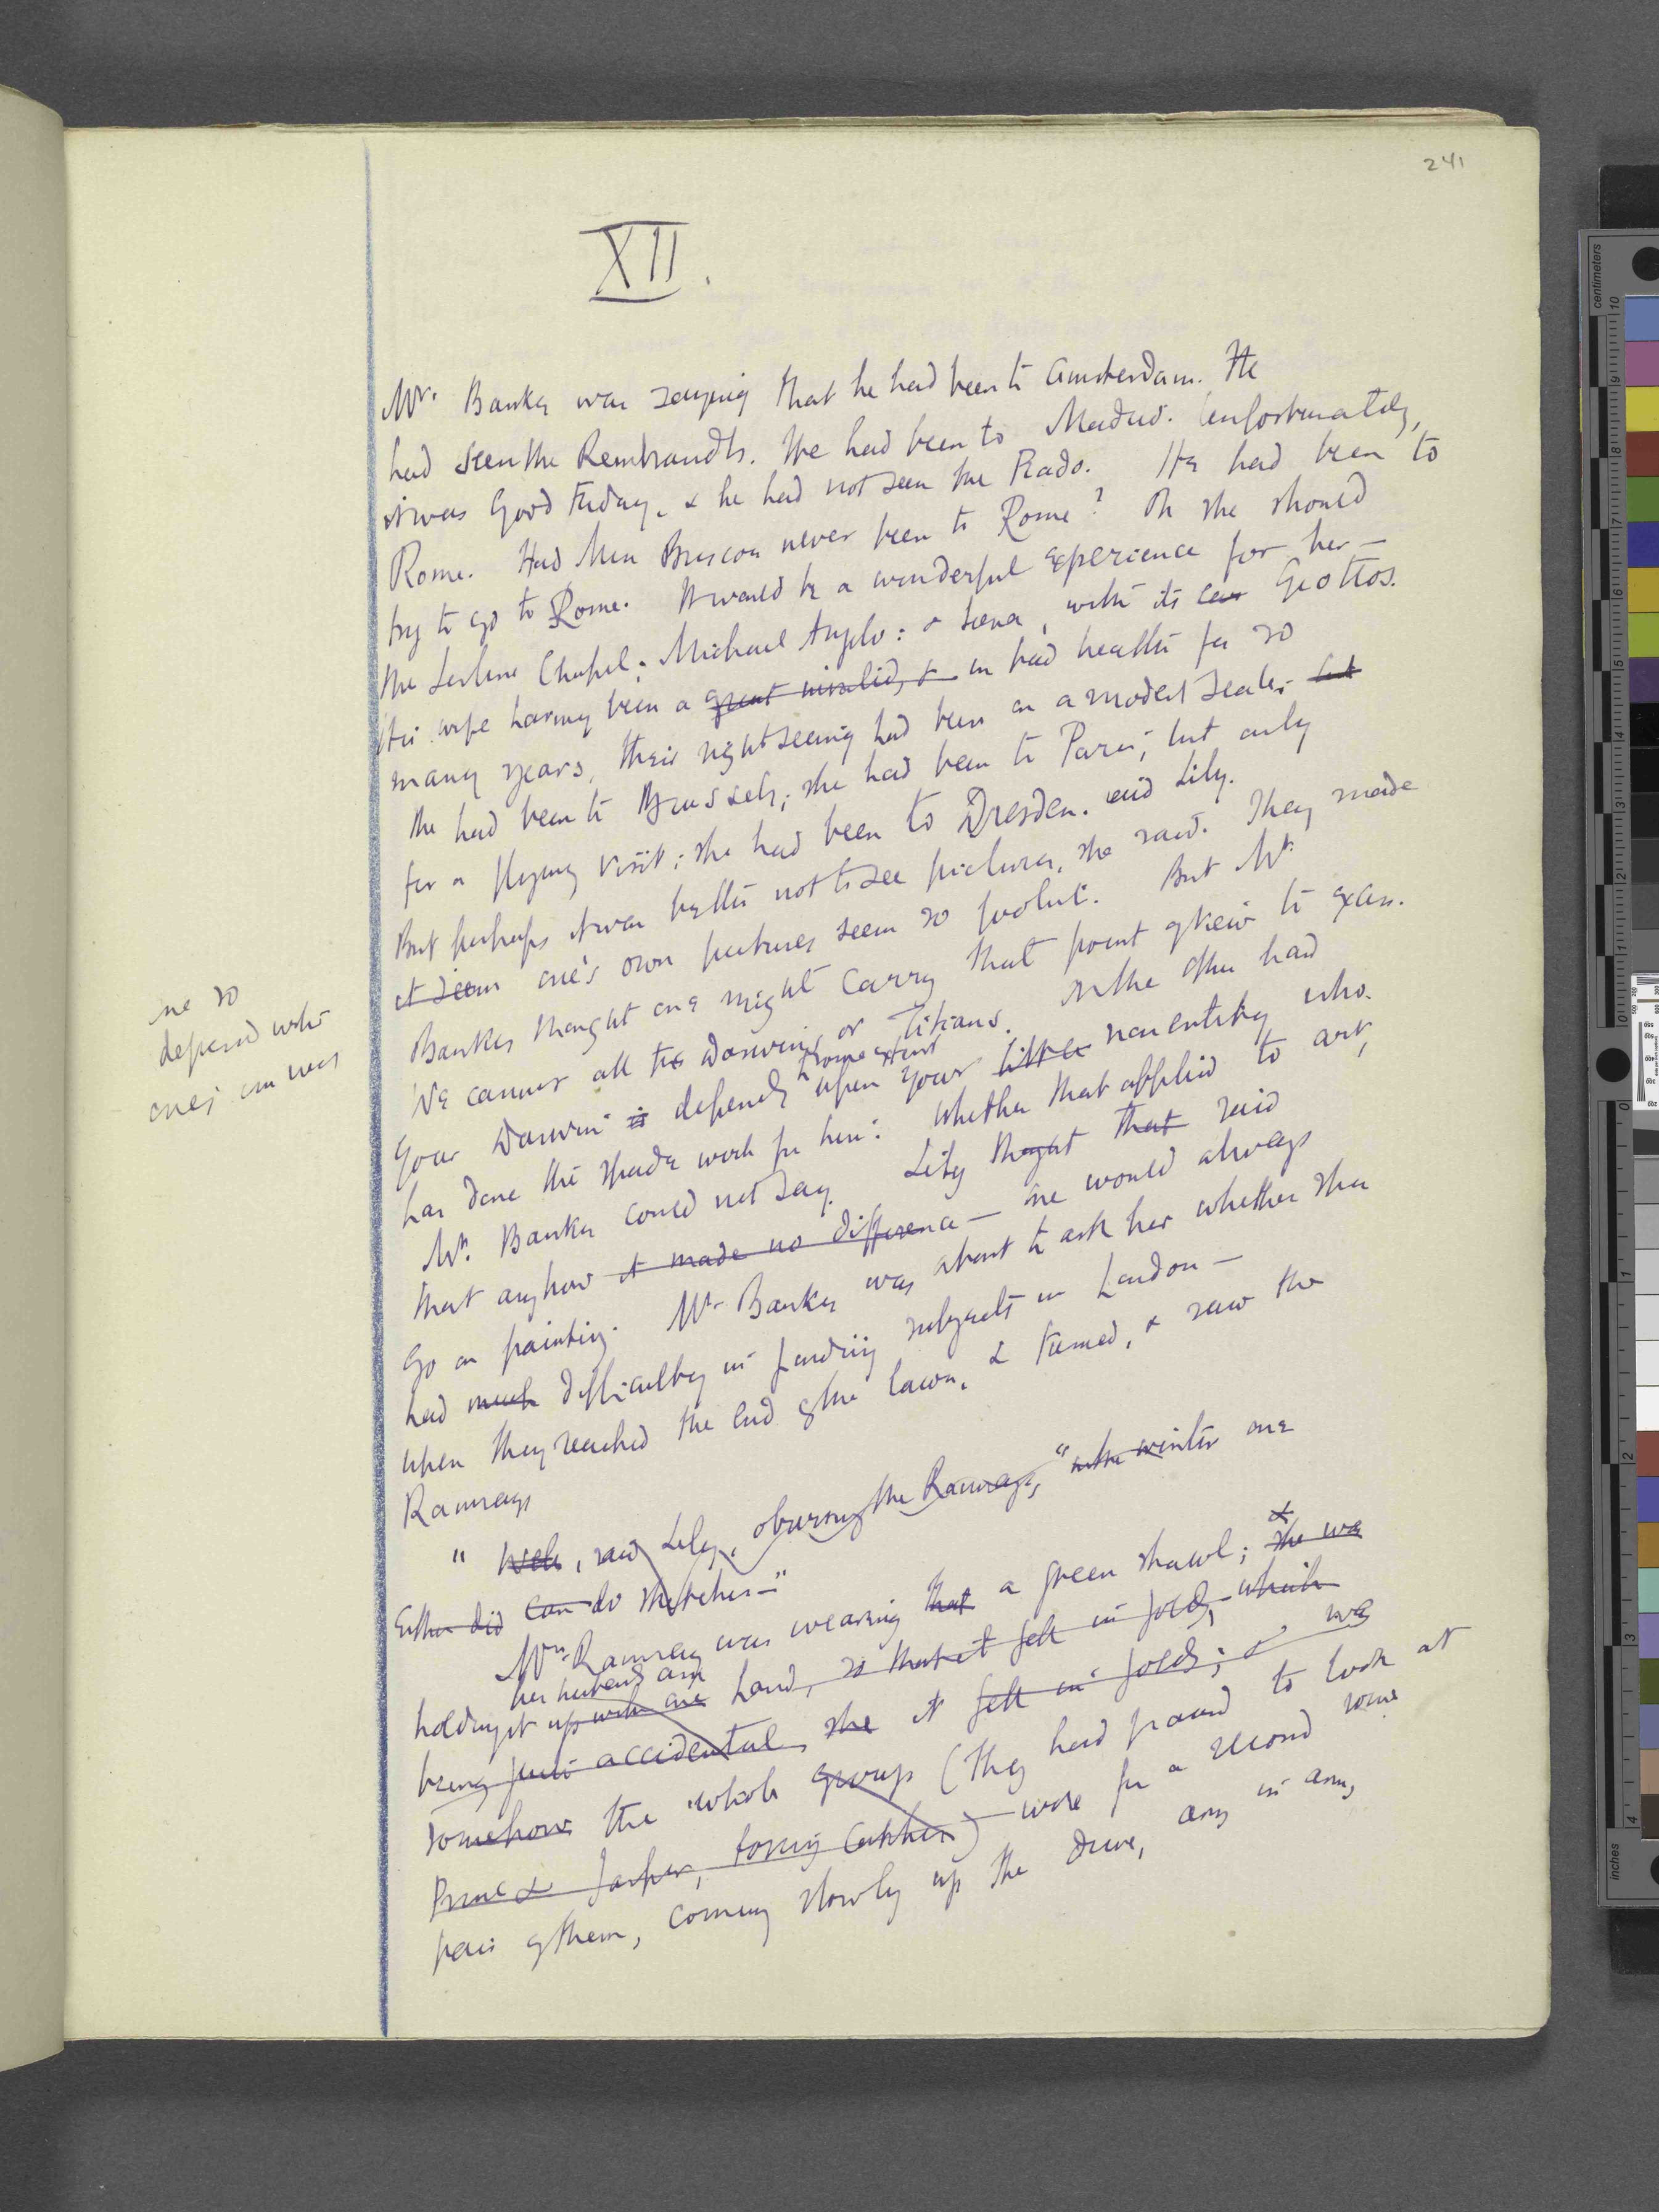 241
XII.
Mr. Bankes was saying that he had been to Amsterdam. He
had seen the Rembrandts. He had been to Madrid. Unfortunately,
it was Good Friday, & he had not seen the Prado. He had been to
Rome. Had Miss Briscoe never been to Rome? Oh she should
try to go to Rome. It would be a wonderful experience for her—
the Sistine Chapel; Michael Angelo: & Siena, with its Giottos.
His wife having been a great invalid, & in bad health for so
many years, their sightseeing had been on a modest scale. but
She had been to Brussels; she had been to Paris; but only
for a flying visit; she had been to Dresden. said Lily.
But perhaps it was better not to see pictures, she said. They made
it seem one's own pictures seem so
Bankes thought one might carry that point of view to excess.
We cannot all be Darwins or Titians. On the other hand
to some extent
your Darwin is depends upon your little nonentity who
has done the spade work for him: Whether that applied to art,
Mr. Bankes could not say. Lily thought that said
that anyhow it made no difference — she would always
go on painting. Mr Bankes was about to ask her whether she
had much difficulty in finding subjects in London—
when they reached the end of the lawn, & turned, & saw the
Ramsays
" Well, said Lily, observing the Ramsays, "in the winter one
Either did can do sketches—"
&
Mrs. Ramsay was wearing that a green shawl; she was
her husbands arm
holding it up with one hand, so that it fell in folds, which
being quite accidental, she it fell in folds; & was
somehow the whole group (they had paused to look at
Prue & Jasper, tossing catches) — were for a second some
pair of them, coming slowly up the drive, arm in arm,
me so
depend
one's